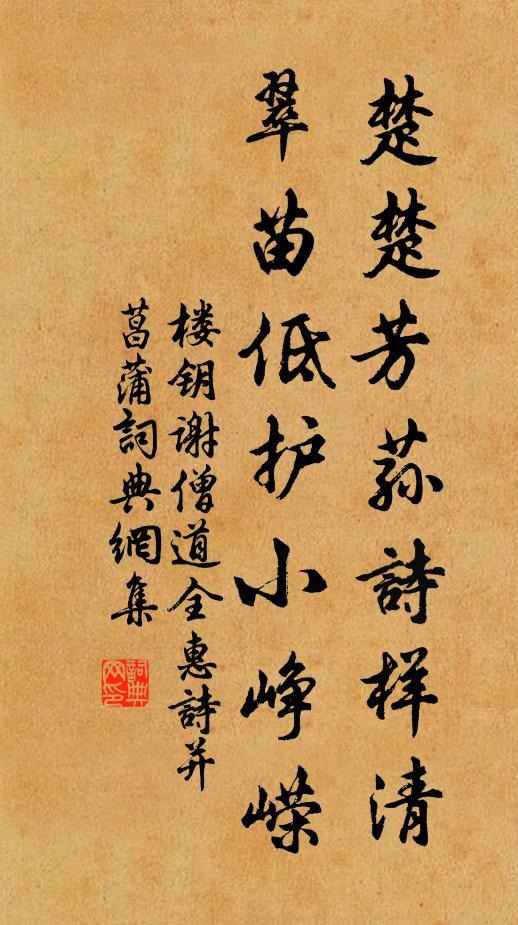 楚楚芳荪詩样清
翠苗低护小峥嵘
楼钥谢僧道全惠詩并
菖蒲詞典網集
詞典
网印